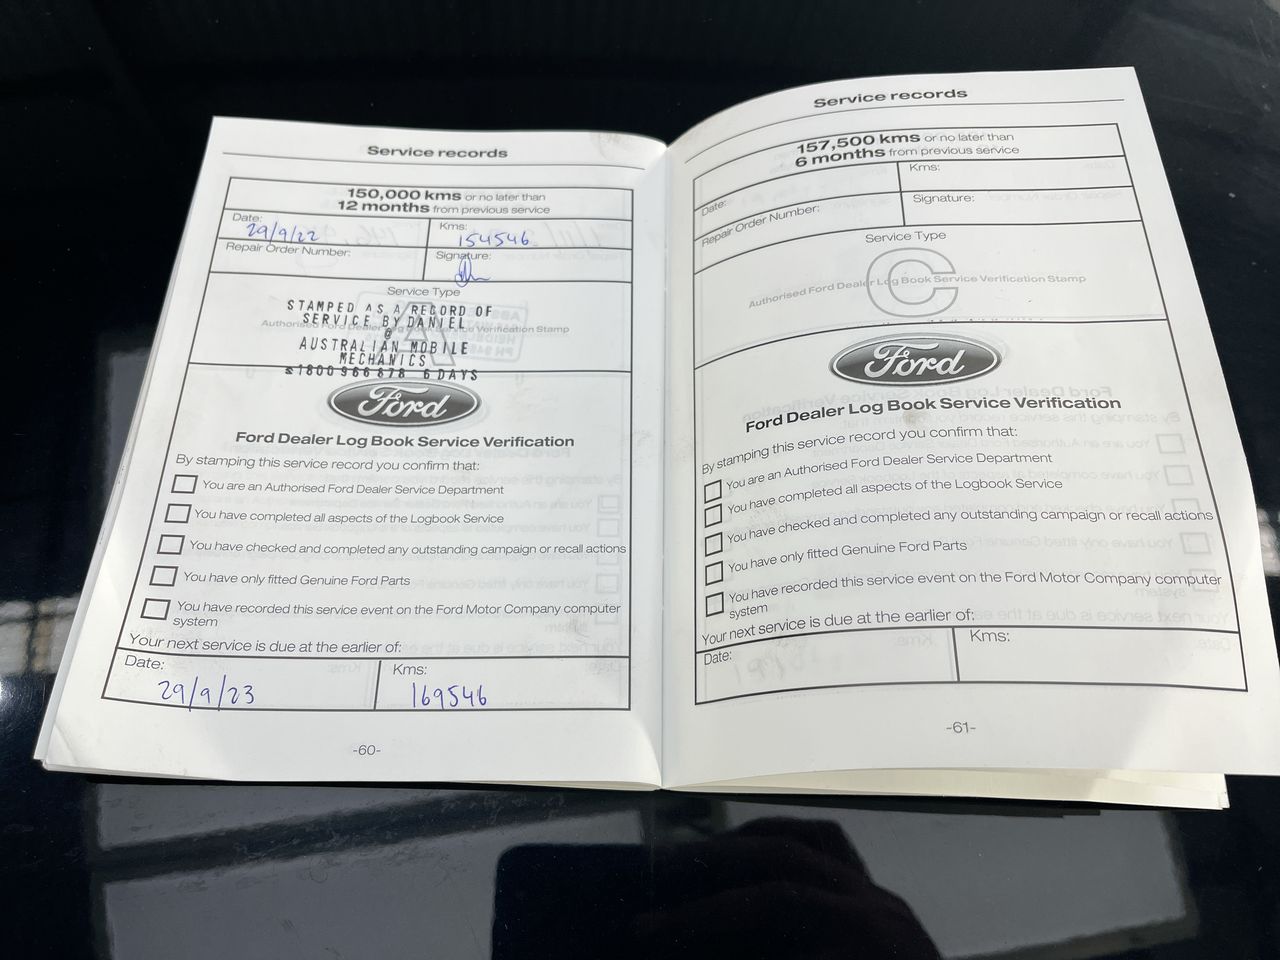 Service records
150,000 kms or no later than
12 months from previous service
Date:
29/9/22
Kms:
154546
Repair Order Number:
Signature:
Service Type
A
STAMPED AS A RECORD OF
SERVICE BY DANIEL
Authorised Ford Dealer Log Book Service Verification Stamp
@
AUSTRALIAN MOBILE
MECHANICS
☎1800 966 878 6 DAYS
Ford
Ford Dealer Log Book Service Verification
By stamping this service record you confirm that:
You are an Authorised Ford Dealer Service Department
You have completed all aspects of the Logbook Service
You have checked and completed any outstanding campaign or recall actions
You have only fitted Genuine Ford Parts
You have recorded this service event on the Ford Motor Company computer
system
Your next service is due at the earlier of:
Date:
29/9/23
Kms:
169546
-60-
Service records
157,500 kms or no later than
6 months from previous service
Date:
Kms:
Repair Order Number:
Signature:
Service Type
C
Authorised Ford Dealer Log Book Service Verification Stamp
Ford
Ford Dealer Log Book Service Verification
By stamping this service record you confirm that:
You are an Authorised Ford Dealer Service Department
You have completed all aspects of the Logbook Service
You have checked and completed any outstanding campaign or recall actions
You have only fitted Genuine Ford Parts
You have recorded this service event on the Ford Motor Company computer
system
Your next service is due at the earlier of:
Date:
Kms:
-61-